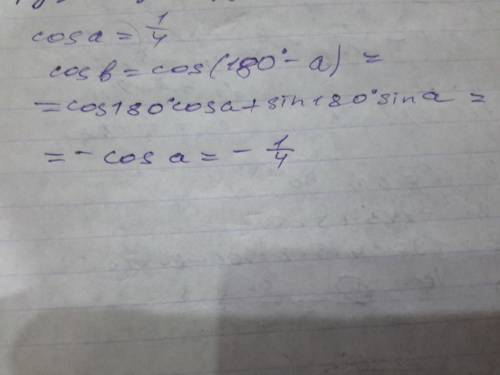 cos a = 1/4
cos b = cos(180° - a) =
= cos180°cos a + sin180°sin a =
= - cos a = - 1/4